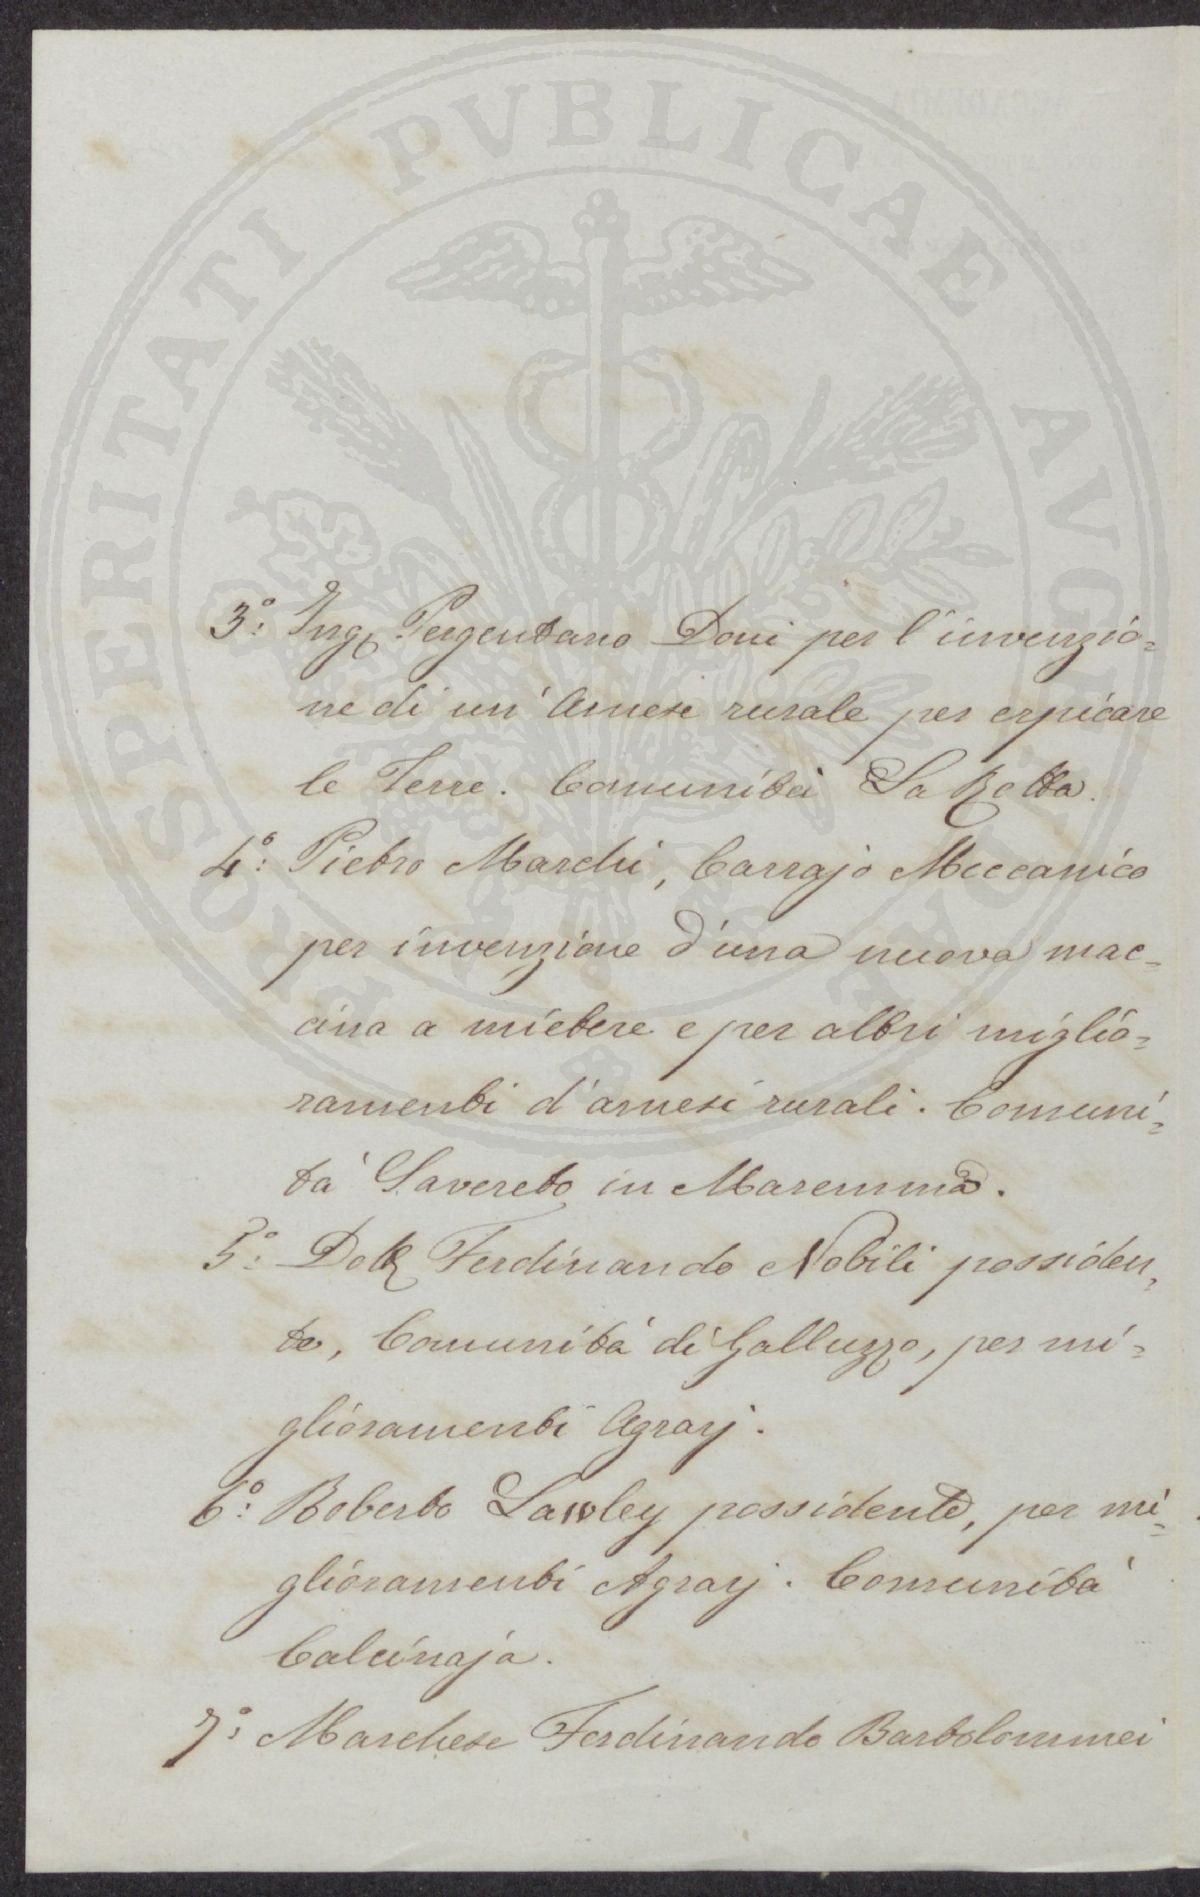 PROSPERITATI PVBLICAE AVGENDAE
3°: Ing. Pergentano Doni per l'invenzio=
ne di un' Arnese rurale per erpicare
le Terre. Comunità La Rotta.
4°: Pietro Marchi, Carrajo Meccanico
per invenzione d'una nuova mac=
cina a mietere e per altri miglio=
ramenti d'arnesi rurali. Comuni=
tà Savereto in Maremma.
5°: Dott. Ferdinando Nobili possiden=
te, Comunità di Galluzzo, per mi=
glioramenti Agrarj.
6°: Roberto Lawley possidente, per mi=
glioramenti Agrarj. Comunità
Calcinaja.
7°: Marchese Ferdinando Bartolommei